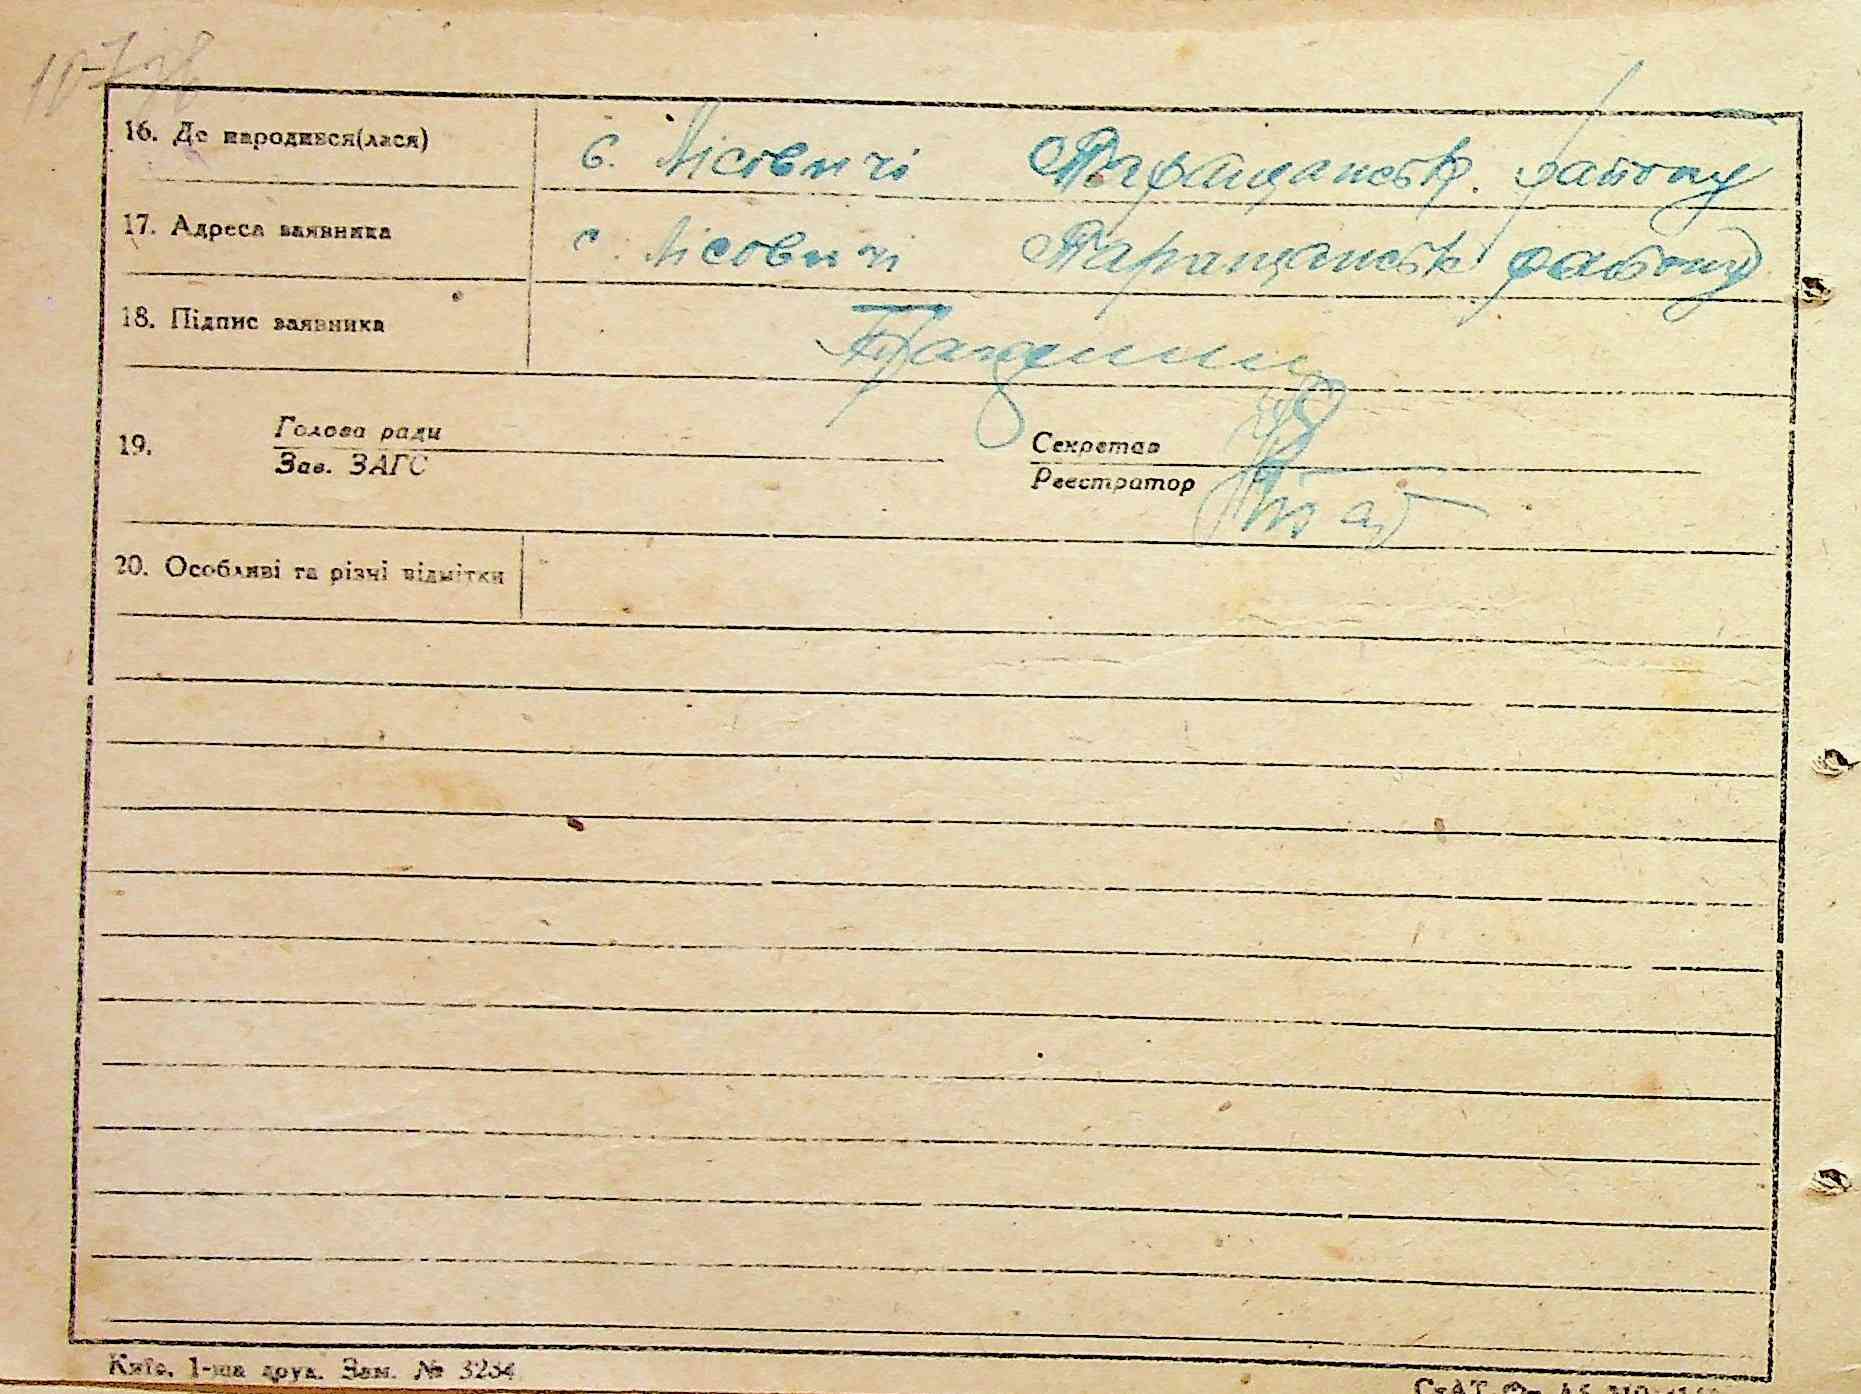 16. Де народився(лася) с. Лісовичі Таращанськ. району
17. Адреса заявника с. Лісовичі Таращанськ району
18. Підпис заявника
19. Голова ради Секретар
Зав. ЗАГС Реєстратор
20. Особливі та різні відмітки
Київ, 1-ша друк. Зам. № 3254